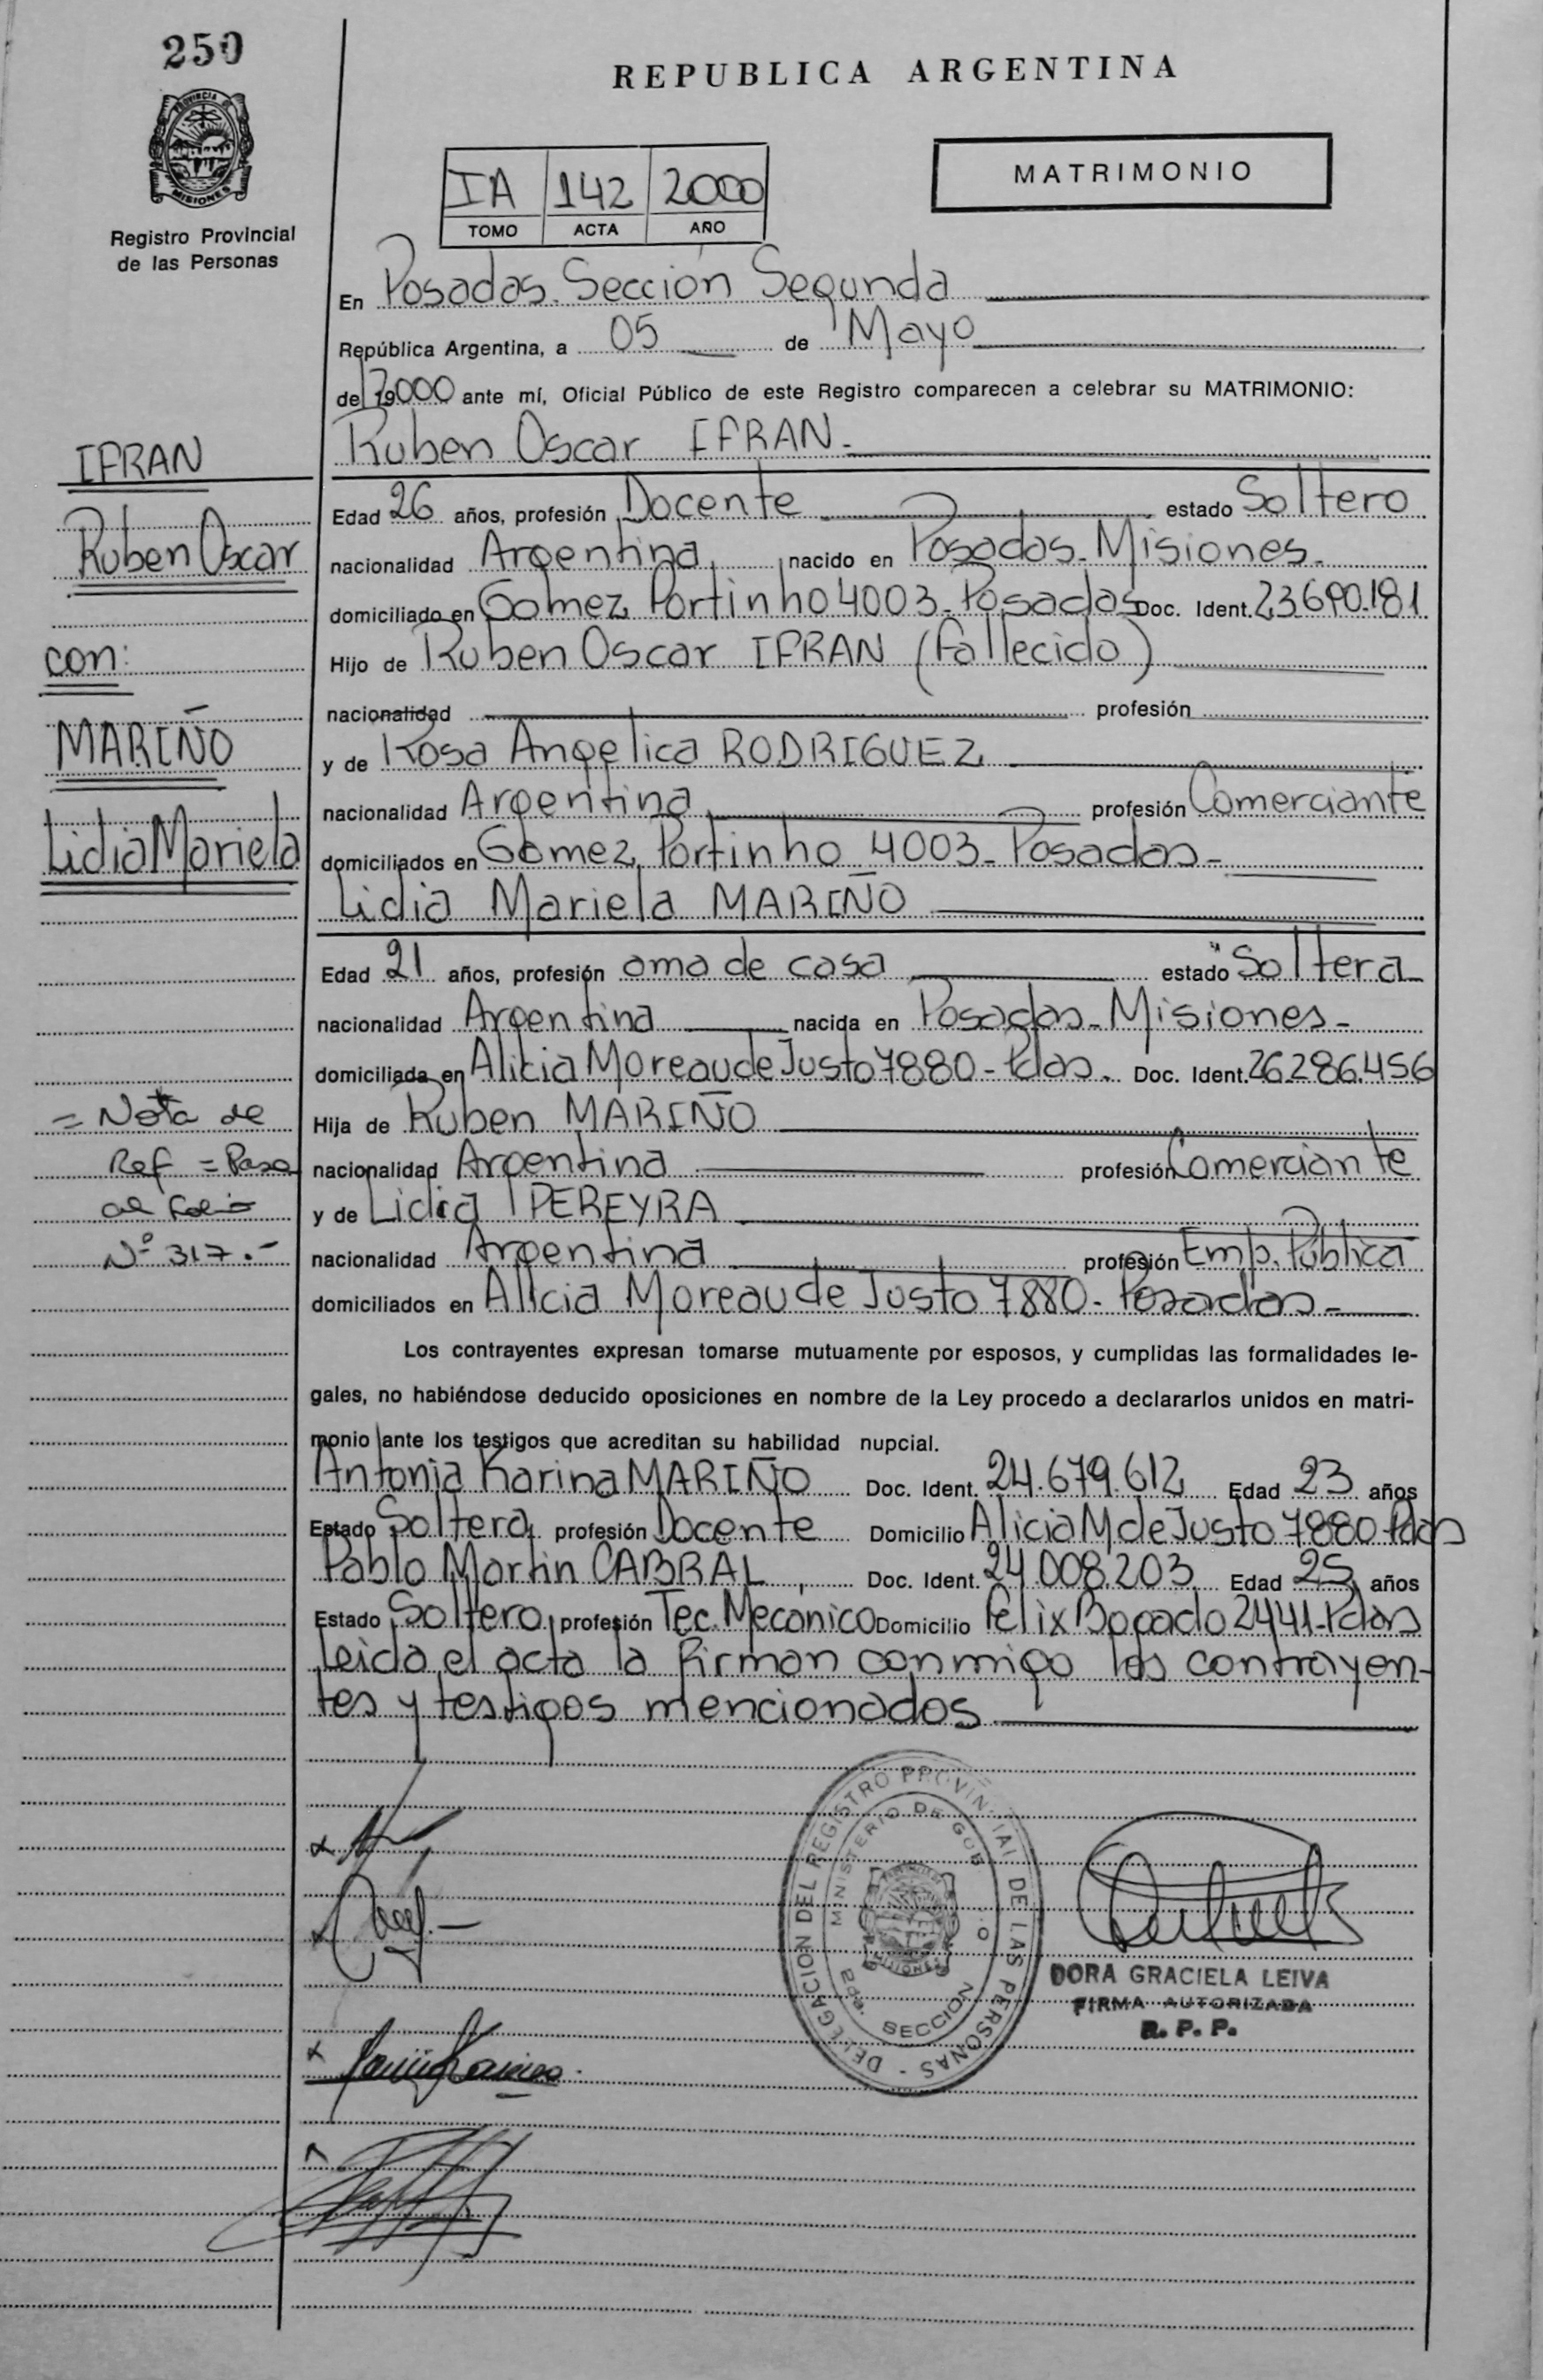 250
REPUBLICA ARGENTINA
PROVINCIA DE
MISIONES
Registro Provincial
de las Personas
MATRIMONIO
IA 142 2000
TOMO ACTA AÑO
En Posadas. Sección Segunda
República Argentina, a 05 de Mayo
de 2000 ante mí, Oficial Público de este Registro comparecen a celebrar su MATRIMONIO:
Ruben Oscar IFRAN.-
IFRAN
Ruben Oscar
con:
MARIÑO
Lidia Mariela
Edad 26 años, profesión Docente estado Soltero
nacionalidad Argentina nacido en Posadas- Misiones.
domiciliado en Gomez Portinho 4003- Posadas Doc. Ident. 23.690.181
Hijo de Ruben Oscar IFRAN (fallecido)
nacionalidad profesión
y de Rosa Angelica RODRIGUEZ
nacionalidad Argentina profesión Comerciante
domiciliados en Gomez Portinho 4003- Posadas-
Lidia Mariela MARIÑO
Edad 21 años, profesión ama de casa estado Soltera
nacionalidad Argentina nacida en Posadas- Misiones-
domiciliada en Alicia Moreau de Justo 7880- Pdas. Doc. Ident. 26.286.456
Hija de Ruben MARIÑO
nacionalidad Argentina profesión Comerciante
y de Lidia PEREYRA
nacionalidad Argentina profesión Emp. Pública
domiciliados en Alicia Moreau de Justo 7880- Posadas-
= Nota de
Ref = Pasa
al folio
Nº 317.-
Los contrayentes expresan tomarse mutuamente por esposos, y cumplidas las formalidades le-
gales, no habiéndose deducido oposiciones en nombre de la Ley procedo a declararlos unidos en matri-
monio ante los testigos que acreditan su habilidad nupcial.
Antonia Karina MARIÑO Doc. Ident. 24.679.612 Edad 23 años
Estado Soltera profesión Docente Domicilio Alicia M de Justo 7880 Pdas
Pablo Martin CABRAL, Doc. Ident. 24.008.203 Edad 25 años
Estado Soltero profesión Tec. Mecánico Domicilio Felix Bogado 2441-Pdas
Leida el acta la firman conmigo los contrayen-
tes y testigos mencionados
DELEGACION DEL REGISTRO PROVINCIAL DE LAS PERSONAS -
MINISTERIO DE GOB
SECCION
DORA GRACIELA LEIVA
FIRMA AUTORIZADA
R. P. P.